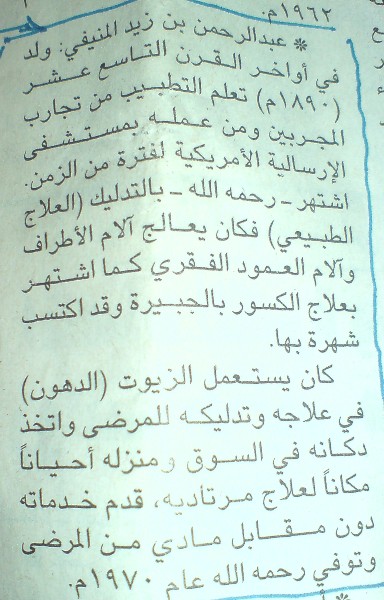 ١٩٦٢م.
* عبدالرحمن بن زيد المنيفي: ولد
في أواخر القرن التاسع عشر
(١٨٩٠م) تعلم التطبيب من تجارب
المجربين ومن عمله بمستشفى
الإرسالية الأمريكية لفترة من الزمن.
اشتهر ـ رحمه الله ـ بالتدليك (العلاج
الطبيعي) فكان يعالج آلام الأطراف
وآلام العمود الفقري كما اشتهر
بعلاج الكسور بالجبيرة وقد اكتسب
شهرة بها.
كان يستعمل الزيوت (الدهون)
في علاجه وتدليكه للمرضى واتخذ
دكانه في السوق ومنزله أحياناً
مكاناً لعلاج مرتأديه، قدم خدماته
دون مقابل مادي من المرضى
وتوفي رحمه الله عام ١٩٧٠م.